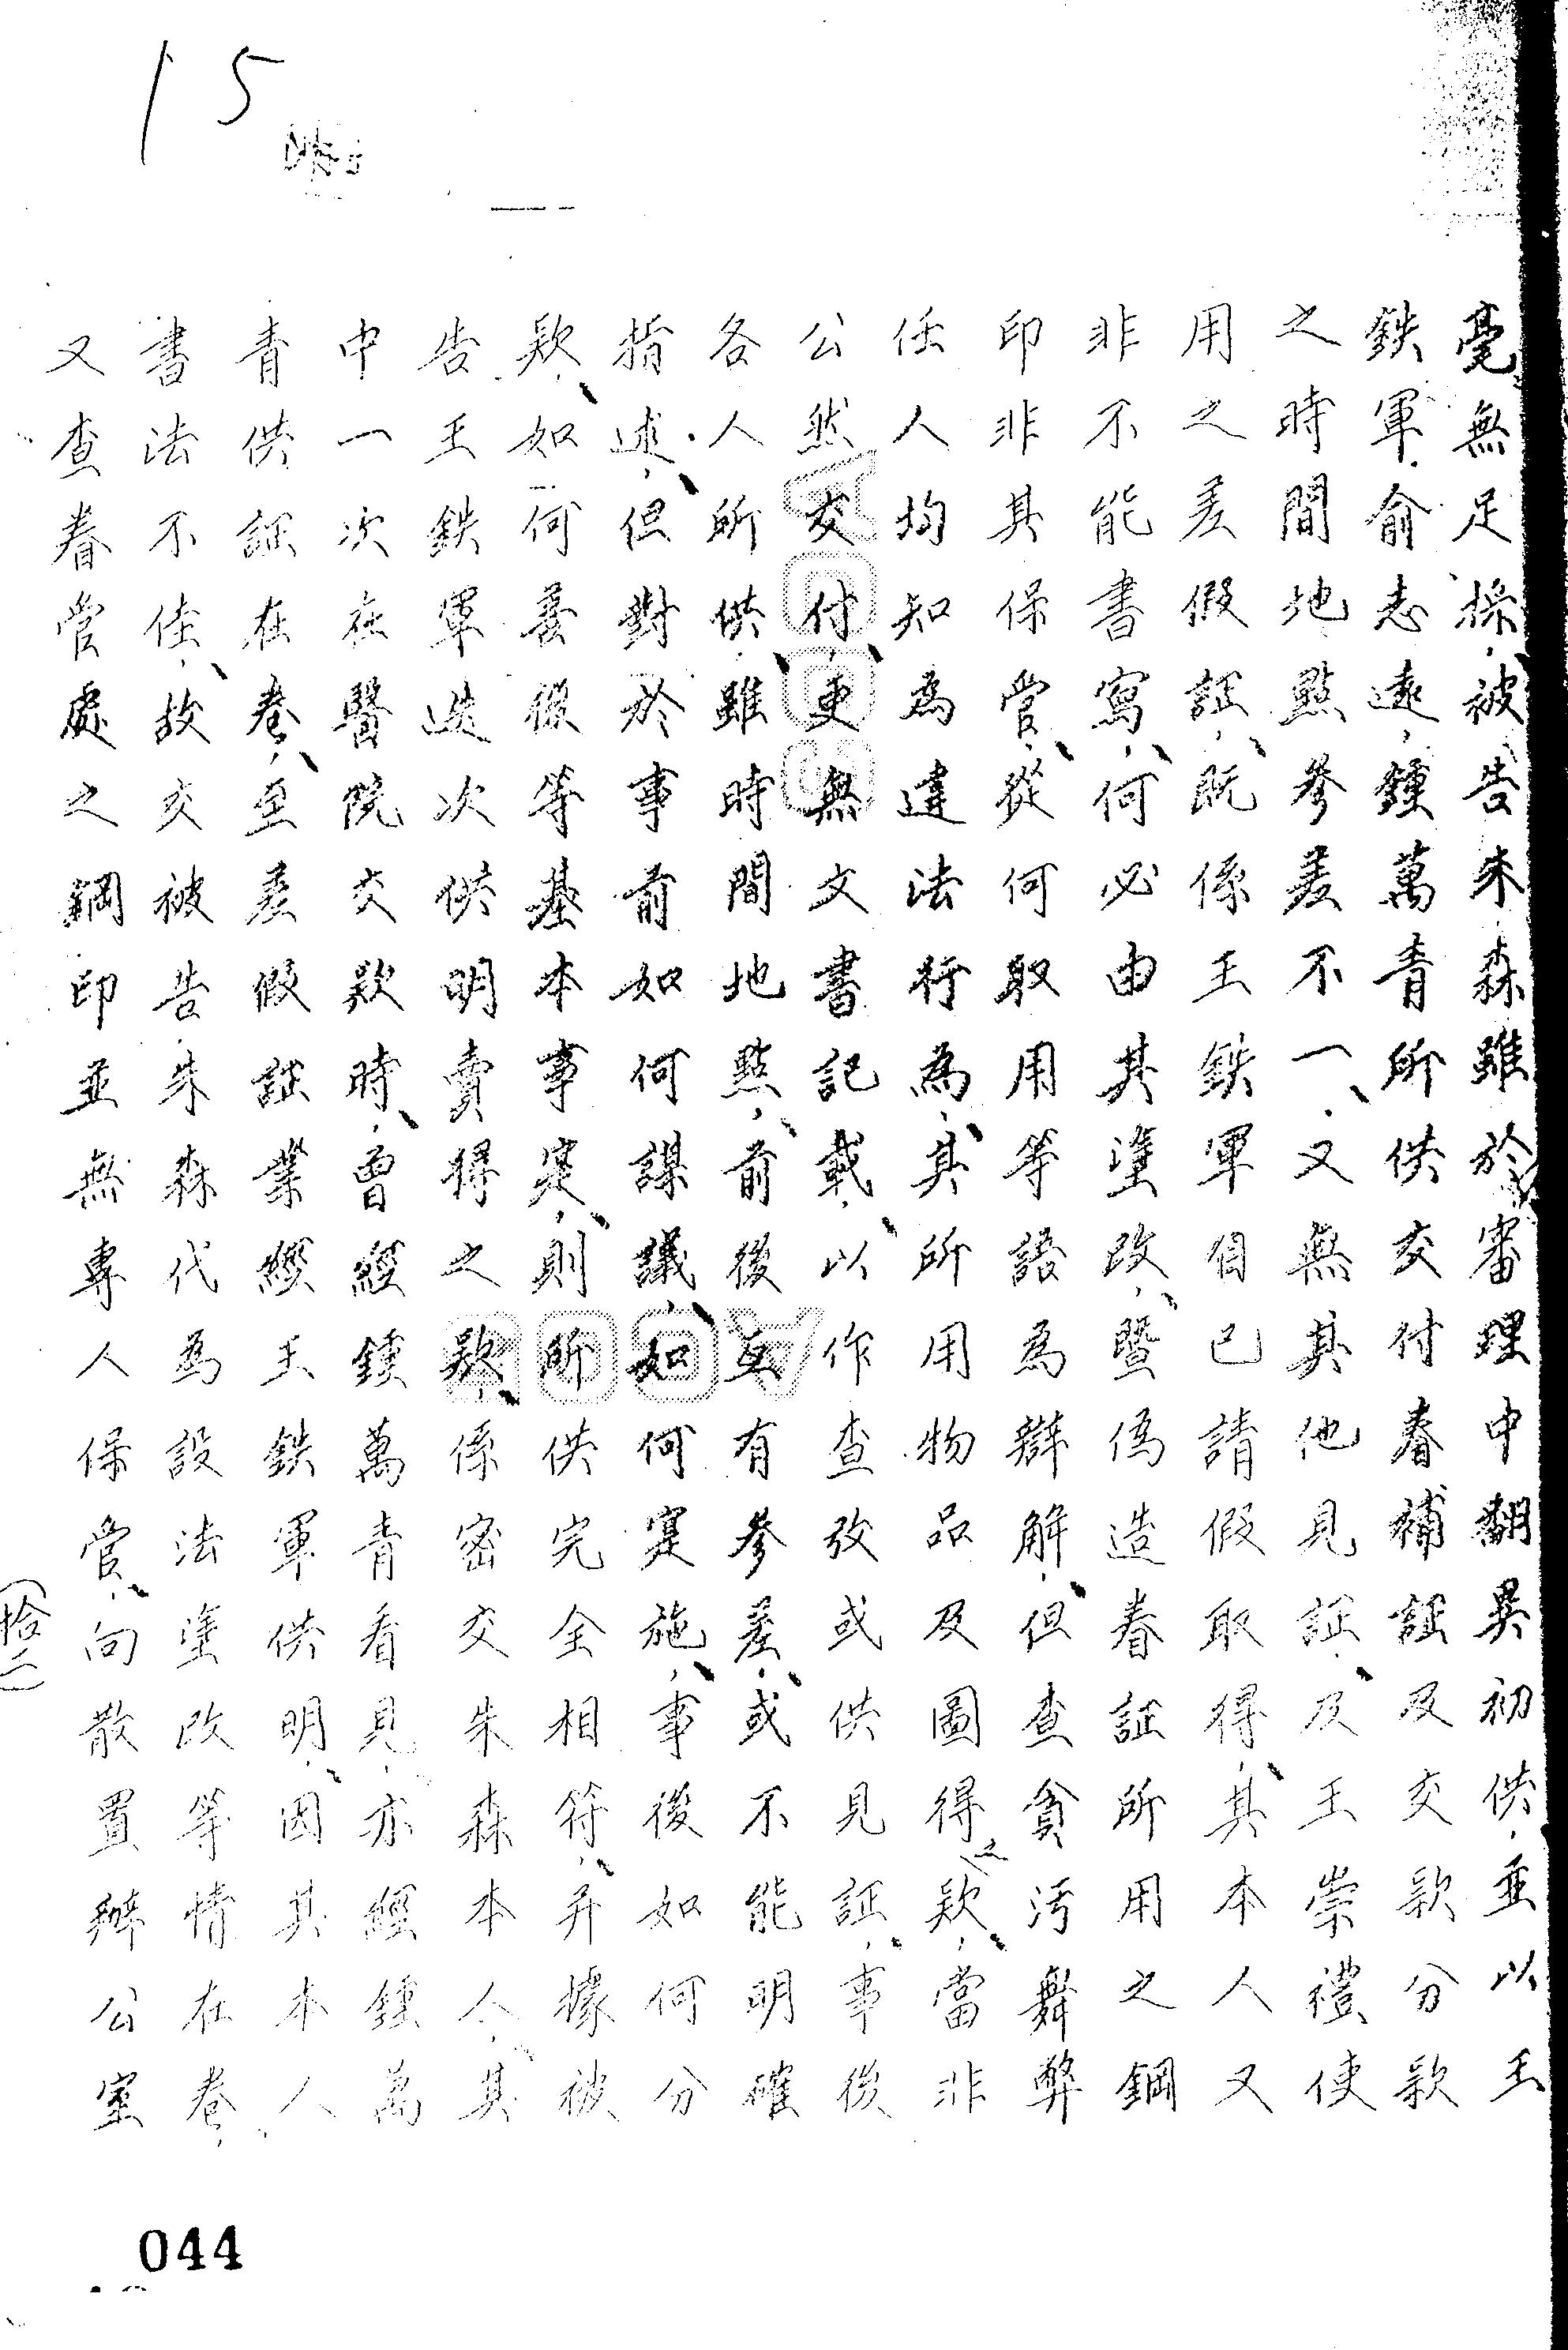 15
毫無足採，被告朱森雖於審理中翻異初供，並以王
鉄軍．俞志遠，鍾萬青所供交付眷補証及交款分款
之時間地點參差不一，又無其他見証，及王崇禮使
用之差假証，既係王鉄軍自已請假取得，其本人又
非不能書寫，何必由其塗改，暨偽造眷証所用之鋼
印非其保管，從何取用等語為辯解，但查貪污舞弊
任人均知為違法行為，其所用物品及圖得之款，當非
公然交付，更無文書記載，以作查攷或供見証，事後
各人所供，雖時間地點，前後互有參差，或不能明確
指述，但對於事前如何謀議，如何寔施，事後如何分
款，如何善後等基本事寔，則所供完全相符，并據被
告王鉄軍迭次供明賣得之款，係密交朱森本人，其
中一次在醫院交款時，曾經鍾萬青看見，亦經鍾萬
青供証在卷，至差假証業經王鉄軍供明，因其本人
書法不佳，故交被告朱森代為設法塗改等情在卷，
又查眷管處之鋼印並無專人保管，向散置辦公室
（拾二）
044